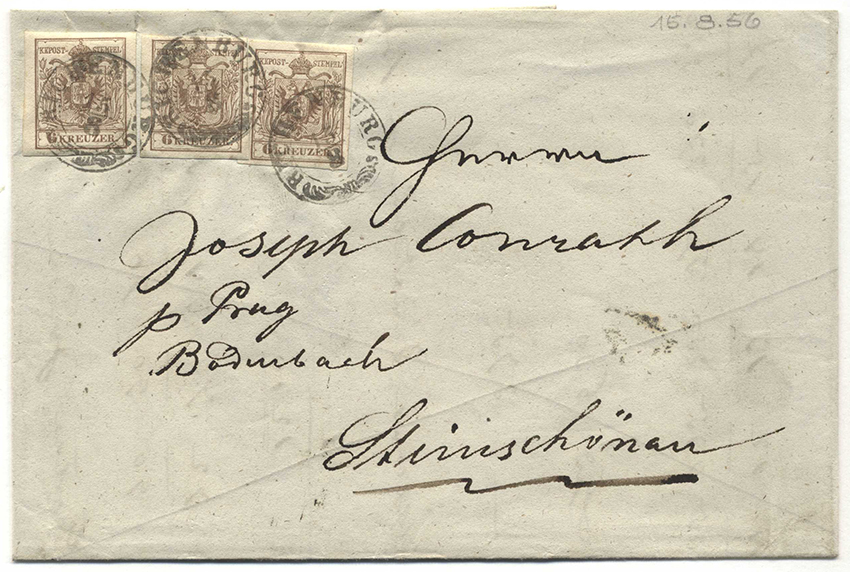 15.8.56
KKPOST-STEMPEL
6 KREUZER
KKPOST-STEMPEL
6 KREUZER
KKPOST-STEMPEL
6 KREUZER
Herrn
Joseph Conrath
p Prag
Bodenbach
Steinschönau